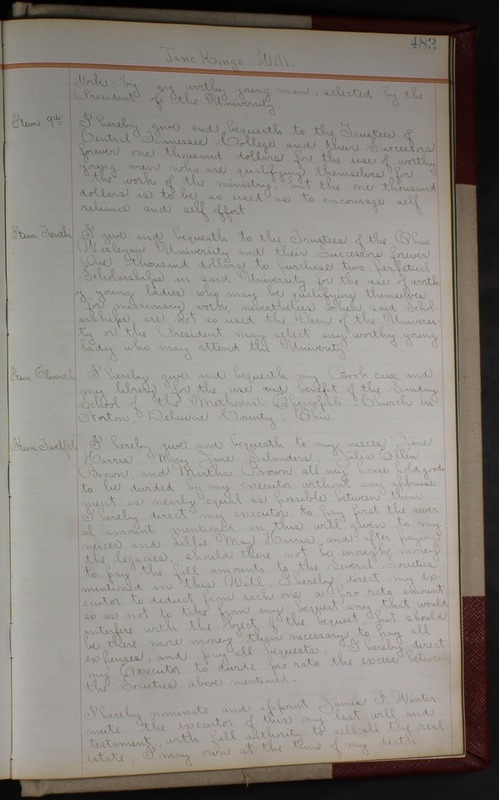 483
Jane Kings Will.
Work; by any worthy young man, selected by the
President of the University
Item 9th I hereby give and bequeath to the Trustees of
Central Tennessee College and their Successors
forever one thousand dollars for the use of worthy
young men who are qualifying themselves for
the work of the ministry, but the one thousand
dollars is to be so used as to encourage self
reliance and self effort
Item Tenth I give and bequeath to the Trustees of the Ohio
Wesleyan University and their Successors forever
One thousand dollars to purchase two perpetual
Scholarships in said University for the use of worth
y young ladies who may be qualifying themselves
for missionary work, nevertheless when said Schol-
arships are not so used the Dean of the Universi-
ty or the President may select any worthy young
lady who may attend the University
Item Eleventh I hereby give and bequeath my Book case and
my library for the use and benefit of the Sunday
School of the Methodist Church in
Norton, Delaware County Ohio
Item Twelfth I hereby give and bequeath to my nieces Jane
Harris, Mary Jane Julia Ellen
Brown, and Martha Brown all my house hold goods
to be divided by my executor without any appraise-
ment as nearby equal as possible between them
I hereby direct my executor to pay first the sever
al amount mentioned in this will given to my
neices and Lillie May Harris, and after paying
the legacies, should there not be enough money
to pay the full amounts to the Several Societies
mentioned in this Will, I hereby direct my ex-
ecutor to deduct from each one a pro rato amount
so as not to take from any bequest any that would
interfere with the object of the bequest but should
be there more money than necessary to pay all
expenses, and pay all bequests, I hereby direct
my Executor to divide pro rato the excess between
the Societies above mentioned.
I hereby nominate and appoint James F. Winter
mute the executor of this my last will and
testament, with full authority to sell all the real
estate, I may own at the time of my death